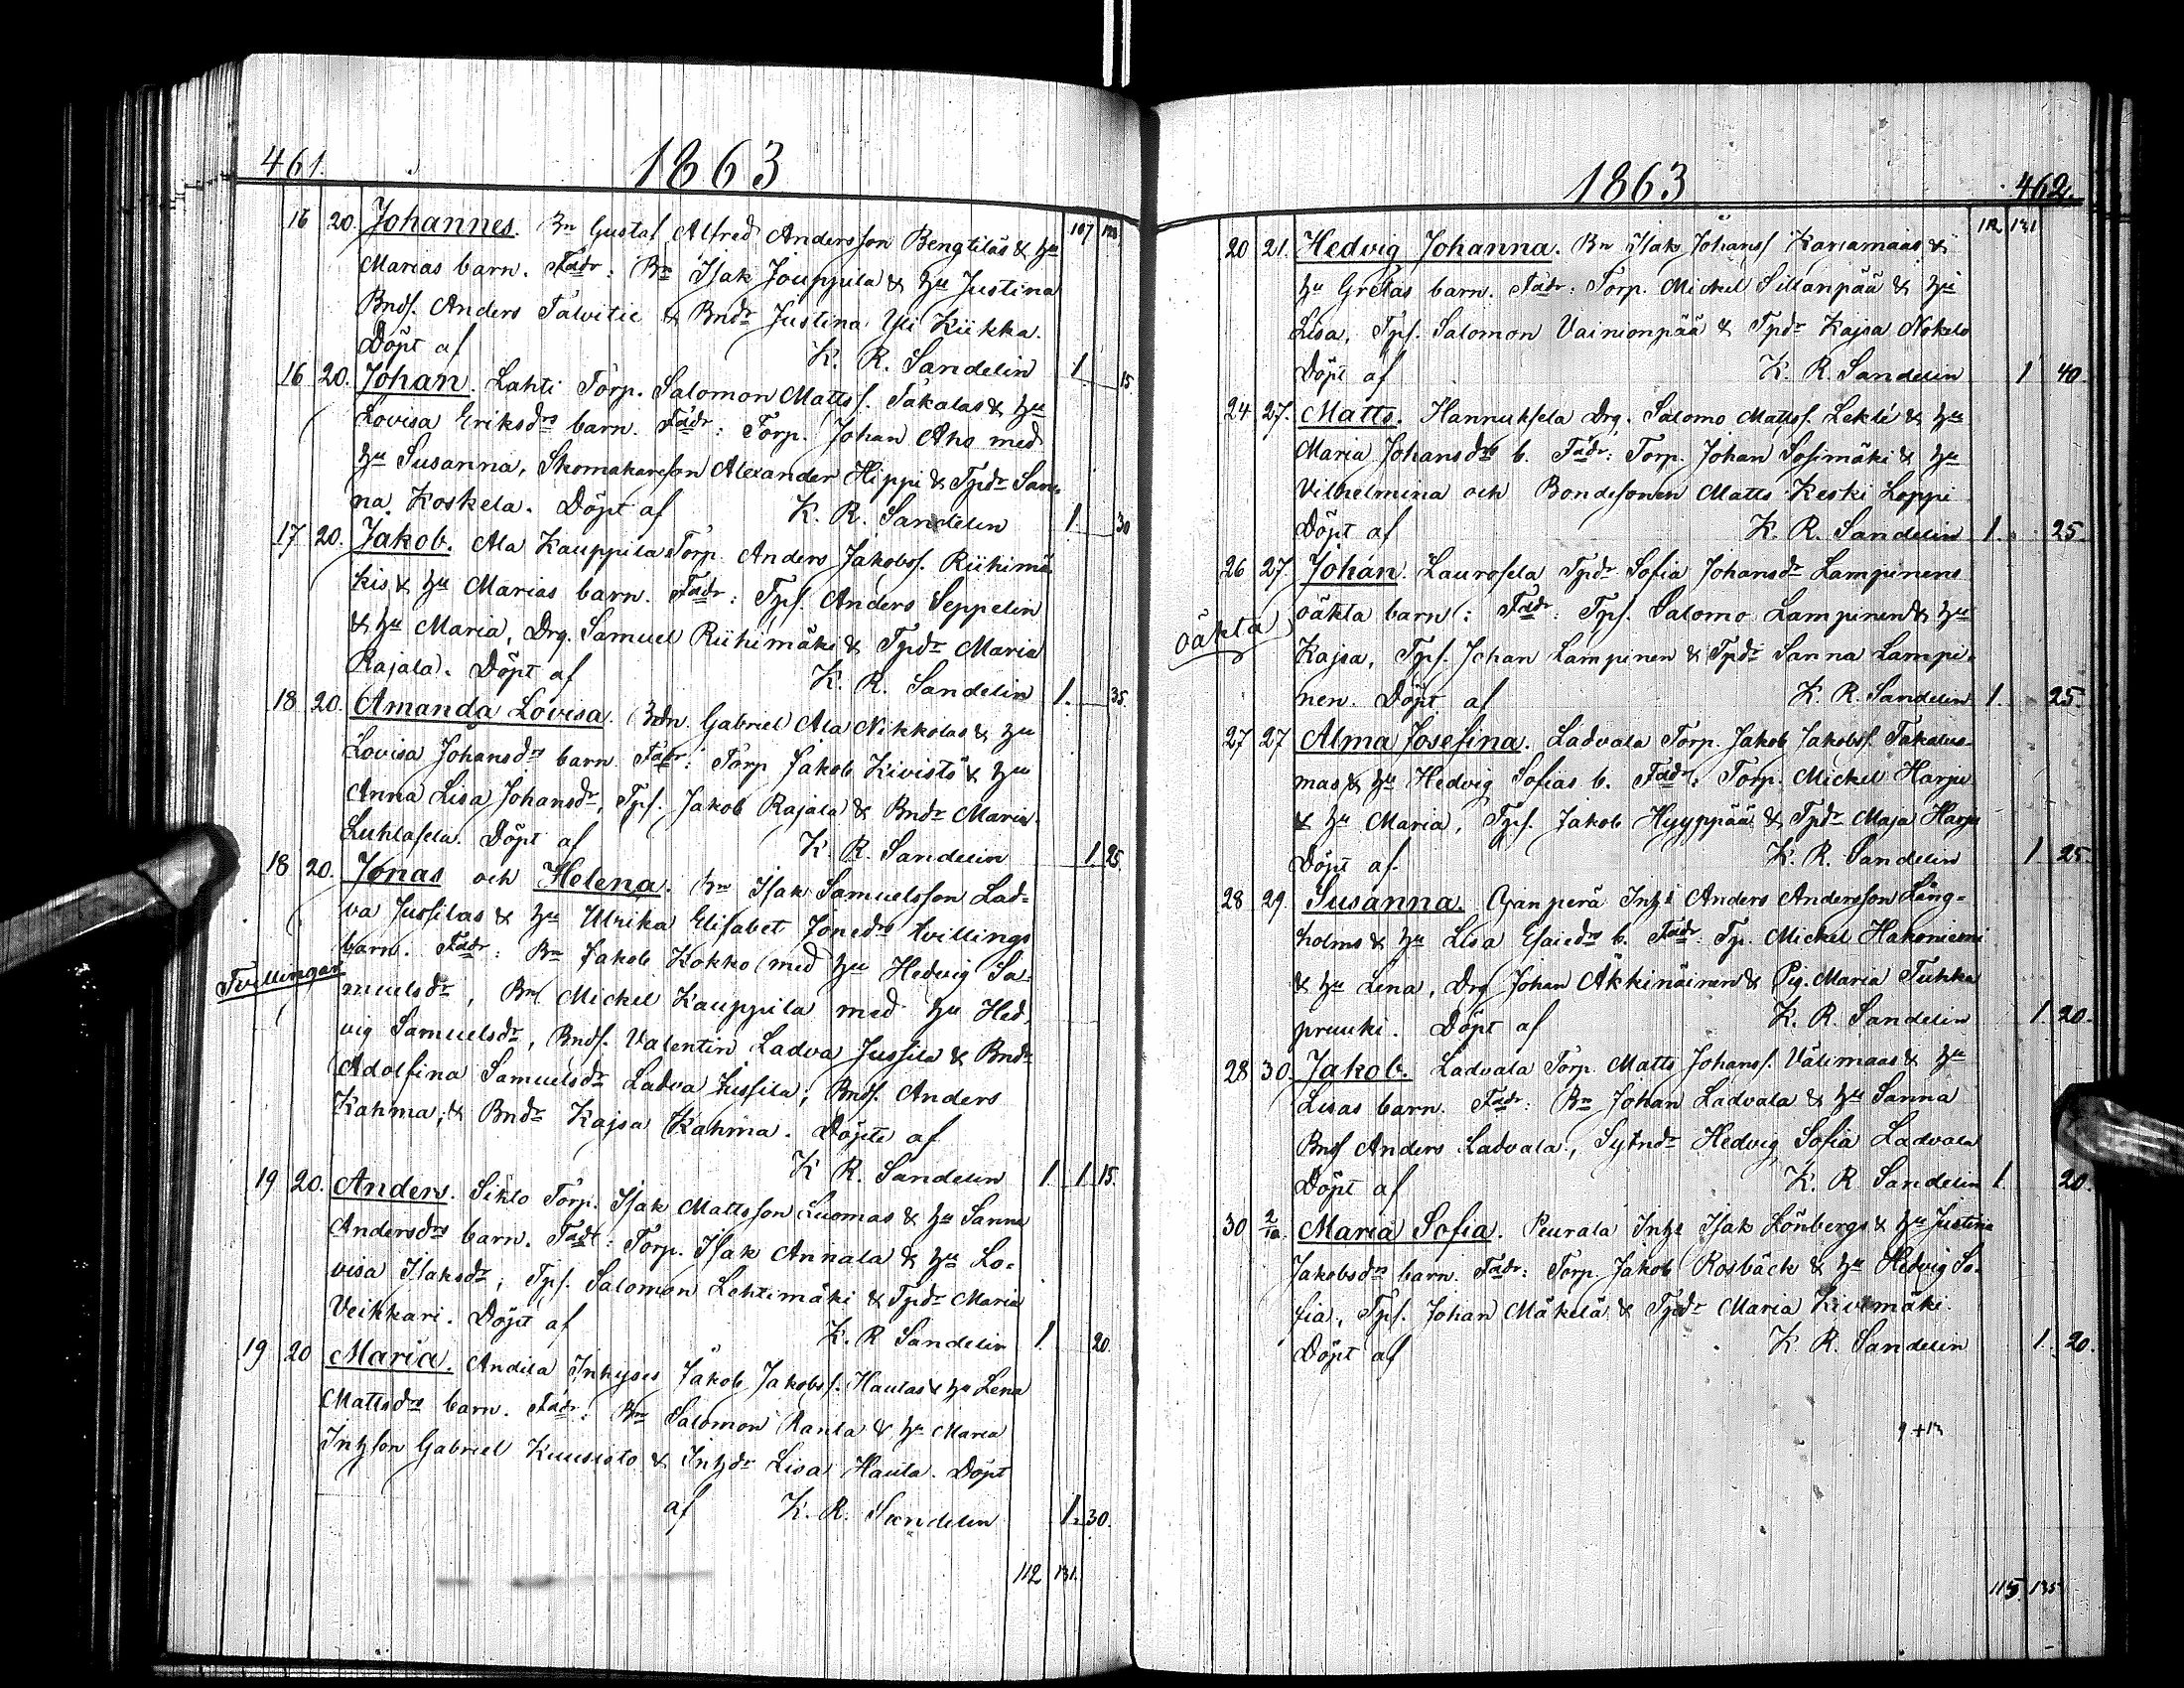 461. 1863
107
16 20. Johannes. Bn Gustaf Alfred Andersson Bengtiläs & hu
Marias barn. Fadr: Bn Isak Jouppila & hu Justina
Bnds. Anders Talvitie & Bndr Justina Yli Kiikka.
Döpt af K. R. Sandelin 1. 15
16 20. Johan. Lahti Torp. Salomon Mattss. Takalas & hu
Lovisa Eriksdrs barn. Fadr: Torp. Johan Aho med
hu Susanna, Skomakareson Alexander Hippi & Tpdr San-
na Koskela. Döpt af K. R. Sandelin 1. 30
17 20. Jakob. Ala Kauppila Torp. Anders Jakobss. Riihimä-
kis & hu Marias barn. Fadr: Tps. Anders Seppelin
& hu Maria, Drg. Samuel Riihimäki & Tpdr Maria
Rajala. Döpt af K. R. Sandelin 1. 35
18 20. Amanda Lovisa. Bdn. Gabriel Ala Nikkolas & hu
Lovisa Johansdrs barn. Fadr: Torp Jakob Kivistö & hu
Anna Lisa Johansdr, Tps. Jakob Rajala & Bndr Maria
Luhtasela. Döpt af K. R. Sandelin 1. 25.
18 20. Jonas och Helena. Bn Isak Samuelsson Lad-
va Jussilas & hu Ulrika Elisabet Jonedrs tvillings
barn. Fadr: Bn Jakob Kokko med hu Hedvig Sa-
Tvillingar
muelsdr, Bn Mickel Kauppila med hu Hed-
vig Samuelsdr, Bnds. Valentin Ladva Jussila & Bndr
Adolfina Samuelsdr Ladva Jussila; Bnds. Anders
Kahma, & Bndr Kajsa Kahma. Döpte af
K R. Sandelin 1 1 15.
19 20. Anders. Siklo Torp. Isak Mattsson Luomas & hu Sanna
Andersdrs barn. Fadr: Torp. Isak Annala & hu Lo-
visa Isaksdr, Tps. Salomon Lehtimäki & Tpdr Maria
Veikkari. Döpt af K. R Sandelin 1. 20.
19 20 Maria. Andila Inhyses Jakob Jakobss. Hautas & hu Lena
Mattsdrs barn. Fadr: Bn Salomon Ranta & hu Maria
Inhson Gabriel Kuusisto & Inhdr Lisa Hauta. Döpt
af K. R. Sandelin 1. 30.
112 131.
1863 462.
112 131
20 21. Hedvig Johanna. Bn Isak Johanss Kariamaas &
hu Gretas barn. Fadr: Torp. Mickel Sillanpää & hu
Lisa, Tps. Salomon Vainionpää & Tpdr Kajsa Nokelo
Döpt af K. R. Sandelin 1 40.
24 27. Matts. Hannuksela Drg. Salomo Mattss. Lekte & hu
Maria Johansdrs b. Fadr: Torp. Johan Sosimäki & hu
Vilhelmina och Bondesonen Matts Keski Loppi
Döpt af K. R. Sandelin 1. 25.
26 27. Johan. Laurosela Tpdr Sofia Johansdr Lampinens
oäkta barn: Fadr: Tps. Salomo Lampinen & hu
oäkta
Kajsa, Tps. Johan Lampinen & Tpdr Sanna Lampi-
nen. Döpt af K. R. Sandelin 1. 25.
27 27 Alma Josefina. Ladvala Torp. Jakob Jakobss. Takaluo-
mas & hu Hedvig Sofias b. Fadr: Torp. Mickel Harju
& hu Maria, Tps. Jakob Hyyppää & Tpdr Maja Harju
Döpt af. K. R. Sandelin 1 25.
28 29. Susanna. Ojanperä Inhs Anders Andersson Ling-
holms & hu Lisa Esaiedrs b. Fadr: Tp. Mickel Hakoniemi
& hu Lena, Drg Johan Äkkinäinen & Pig. Maria Tuhka
pruuki. Döpt af K. R. Sandelin 1. 20.
28 30. Jakob. Ladvala Torp. Matts Johanss. Välimaas & hu
Lisas barn. Fadr: Bn Johan Ladvala & hu Sanna
Bnds Anders Ladvala, Sytndr Hedvig Sofia Ladvala
Döpt af K. R Sandelin 1. 20.
30 2/10. Maria Sofia. Peurala Inhs Isak Lönbergs & hu Justina
Jakobsdrs barn. Fadr: Torp. Jakob Rosbäck & hu Hedvig So-
fia, Tps. Johan Mäkelä & Tpdr Maria Kivimäki.
Döpt af K. R. Sandelin 1. 20.
9+13
115. 135